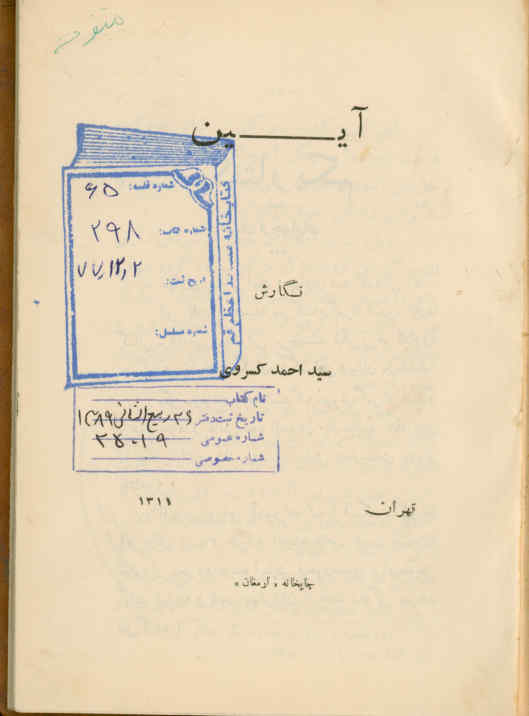 متفرقه
آیین
شماره قفسه: ۶۵
شماره کتاب: ۲۹۸
تاریخ ثبت: ۷۷٫۱۲٫۲
شماره مسلسل:
کتابخانه مسجد اعظم قم
نگارش
سید احمد کسروی
نام کتاب
تاریخ ثبت دفتر ۲۶ ربیع الثانی ۱۳۸۹
شماره عمومی ۲۵۰۱۹
شماره خصوصی
تهران
۱۳۱۱
چاپخانه «ارمغان»